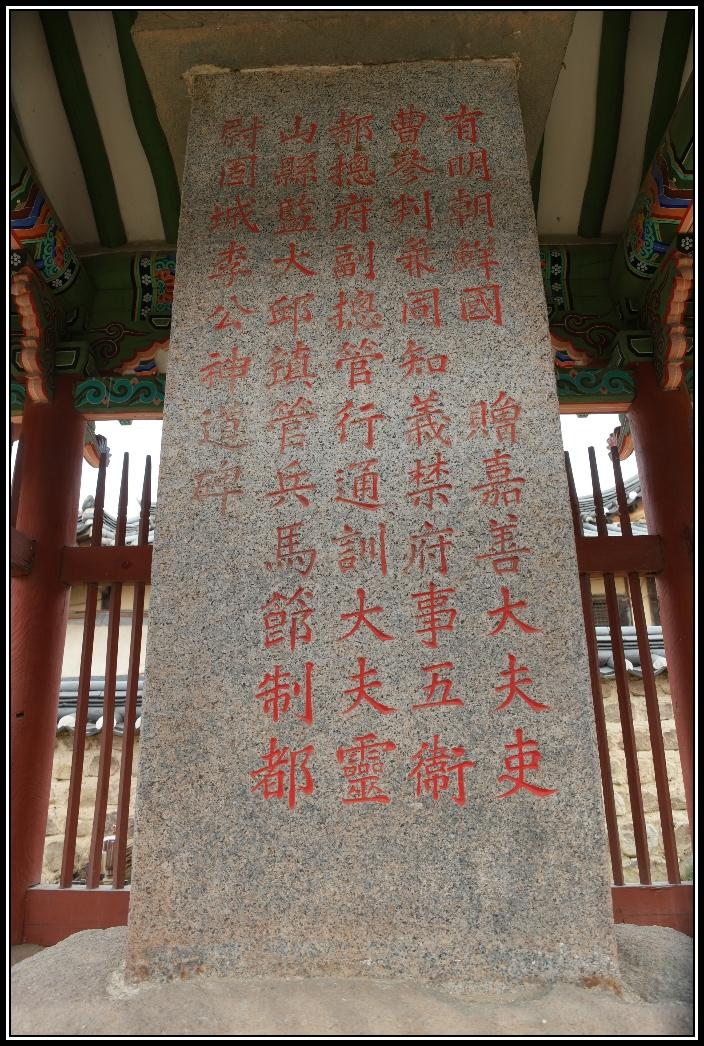 有明朝鮮國 贈嘉善大夫吏
曹參判兼同知義禁府事五衛
都摠府副摠管行通訓大夫靈
山縣監大邱鎮管兵馬節制都
尉固城李公神道碑